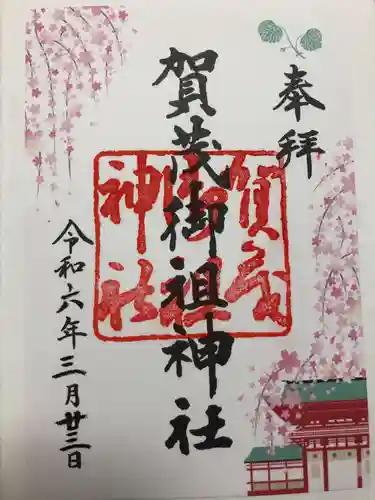 奉拝
賀茂御祖神社
賀茂御祖神社
令和六年三月廿三日